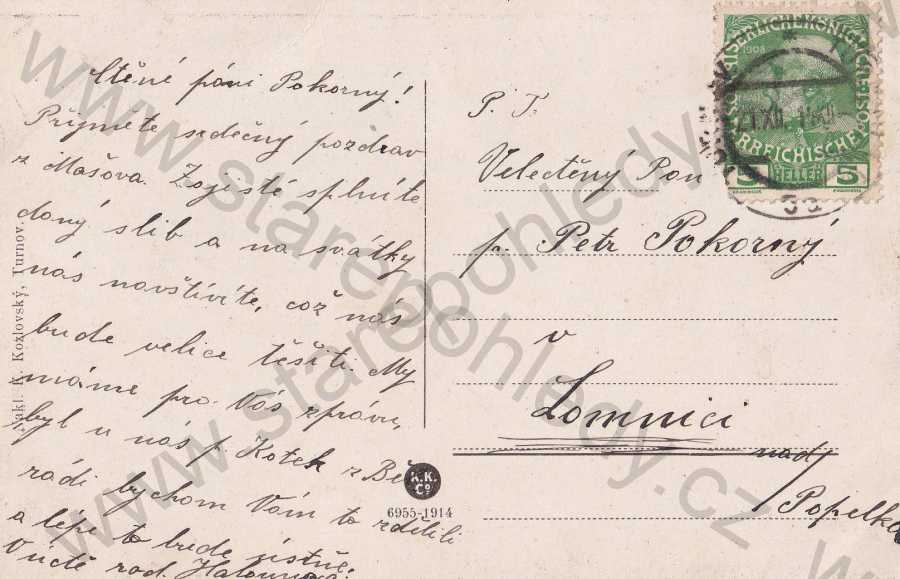 Ctěné páni Pokorný!
Přijměte srdečný pozdrav
z Mašova. Zajisté splníte
daný slib a na svátky
nás navštívíte, což nás
bude velice těšiti. My
máme pro Vás zprávu,
byl u nás p. Kotek z Bě
rádi bychom Vám to sdělili
a lépe to bude jistně.
V úctě rod.
P. T.
Velectěný Pan
p. Petr Pokorný
v
Lomnici
nad
Popelko
Nakl. K. Kozlovský, Turnov.
K.K.
Co
6955-1914
1908
5 HELLER 5
www.starepohledy.cz